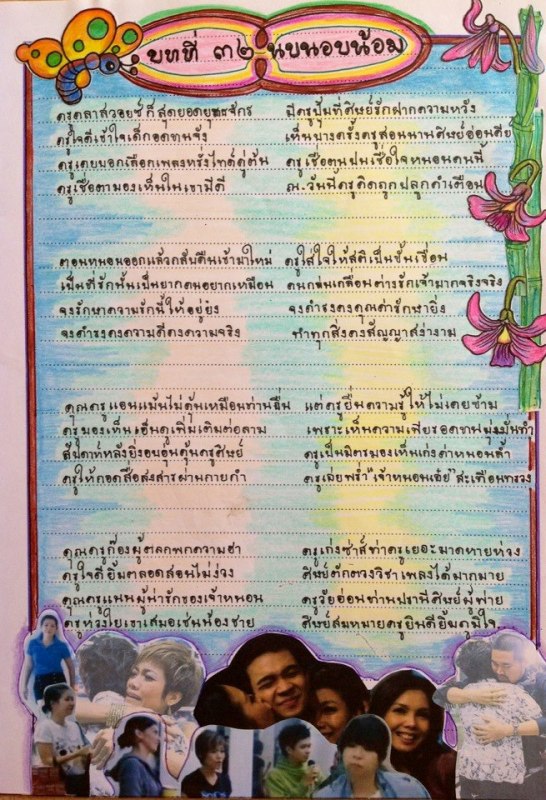 บทที่ ๓๒ นบนอบน้อม
ครูคลาสวอยซ์ก็สุดยอดยุทธจักร มีครูปุ้มที่ศิษย์รักฝากความหวัง
ครูใจดีเข้าใจเด็กอดทนจัง เห็นบางครั้งครูสอนนานศิษย์อ่อนเคีย
ครูเคยบอกเลือกเพลงหรั่งไทด์คู่ตัน ครูเชื่อตนปนเชื่อใจหนอนคนนี้
ครูเชื่อตามองเห็นในเขามีดี ณ.วันนี้ครูคิดถูกปลูกคำเตือน
ตอนหนอนออกแล้วกลับคืนเข้ามาใหม่ ครูใส่ใจให้สติเป็นชั้นเชื่อน
เป็นที่รักนั้นเป็นยากคนอยากเหมือน คนกล่นเกลื่อนต่างรักเจ้ามากจริงจริง
จงรักษาความรักนี้ให้อยู่ยั้ง จงดำรงคงคุณค่ารักษายิ่ง
จงดำรงคงความดีคงความจริง ทำทุกสิ่งคงสัญญาสง่างาม
คุณครูแอนแม้นไม่คุ้นเหมือนท่านอื่น แต่ครูยื่นความรู้ให้ไม่เคยข้าม
ครูมองเห็นเอ็นดูเพิ่มเติมต่อลาม เพราะเห็นความเพียรอดทน
สัปดาห์หลังยิ่งอบอุ่นคุ้นครูศิษย์ ครูเป็นมิตรมองเห็นเก่งค่าหนอนล้ำ
ครูให้กอดสื่อสงสารผ่านกายกำ ครูเลยพร่ำ"เจ้าหนอนเอ๋ย"สะเทือนทรวง
คุณครูก๊องผู้ตลกพกความฮา ครูเก่งซ่าส์ท่าครูเยอะมาดหายห่วง
ครูใจดียิ้มตลอดสอนไม่ง่วง ศิษย์ตักตวงวิชาเพลงได้มากมาย
คุณครูแนนผู้น่ารักของเจ้าหนอน ครูอ้อนท่านปรานีศิษย์ผู้พ่าย
ครูห่วงใยเขาเสมอเช่นน้องชาย ศิษย์สมหมายครูยินดียิ้มภูมิใจ